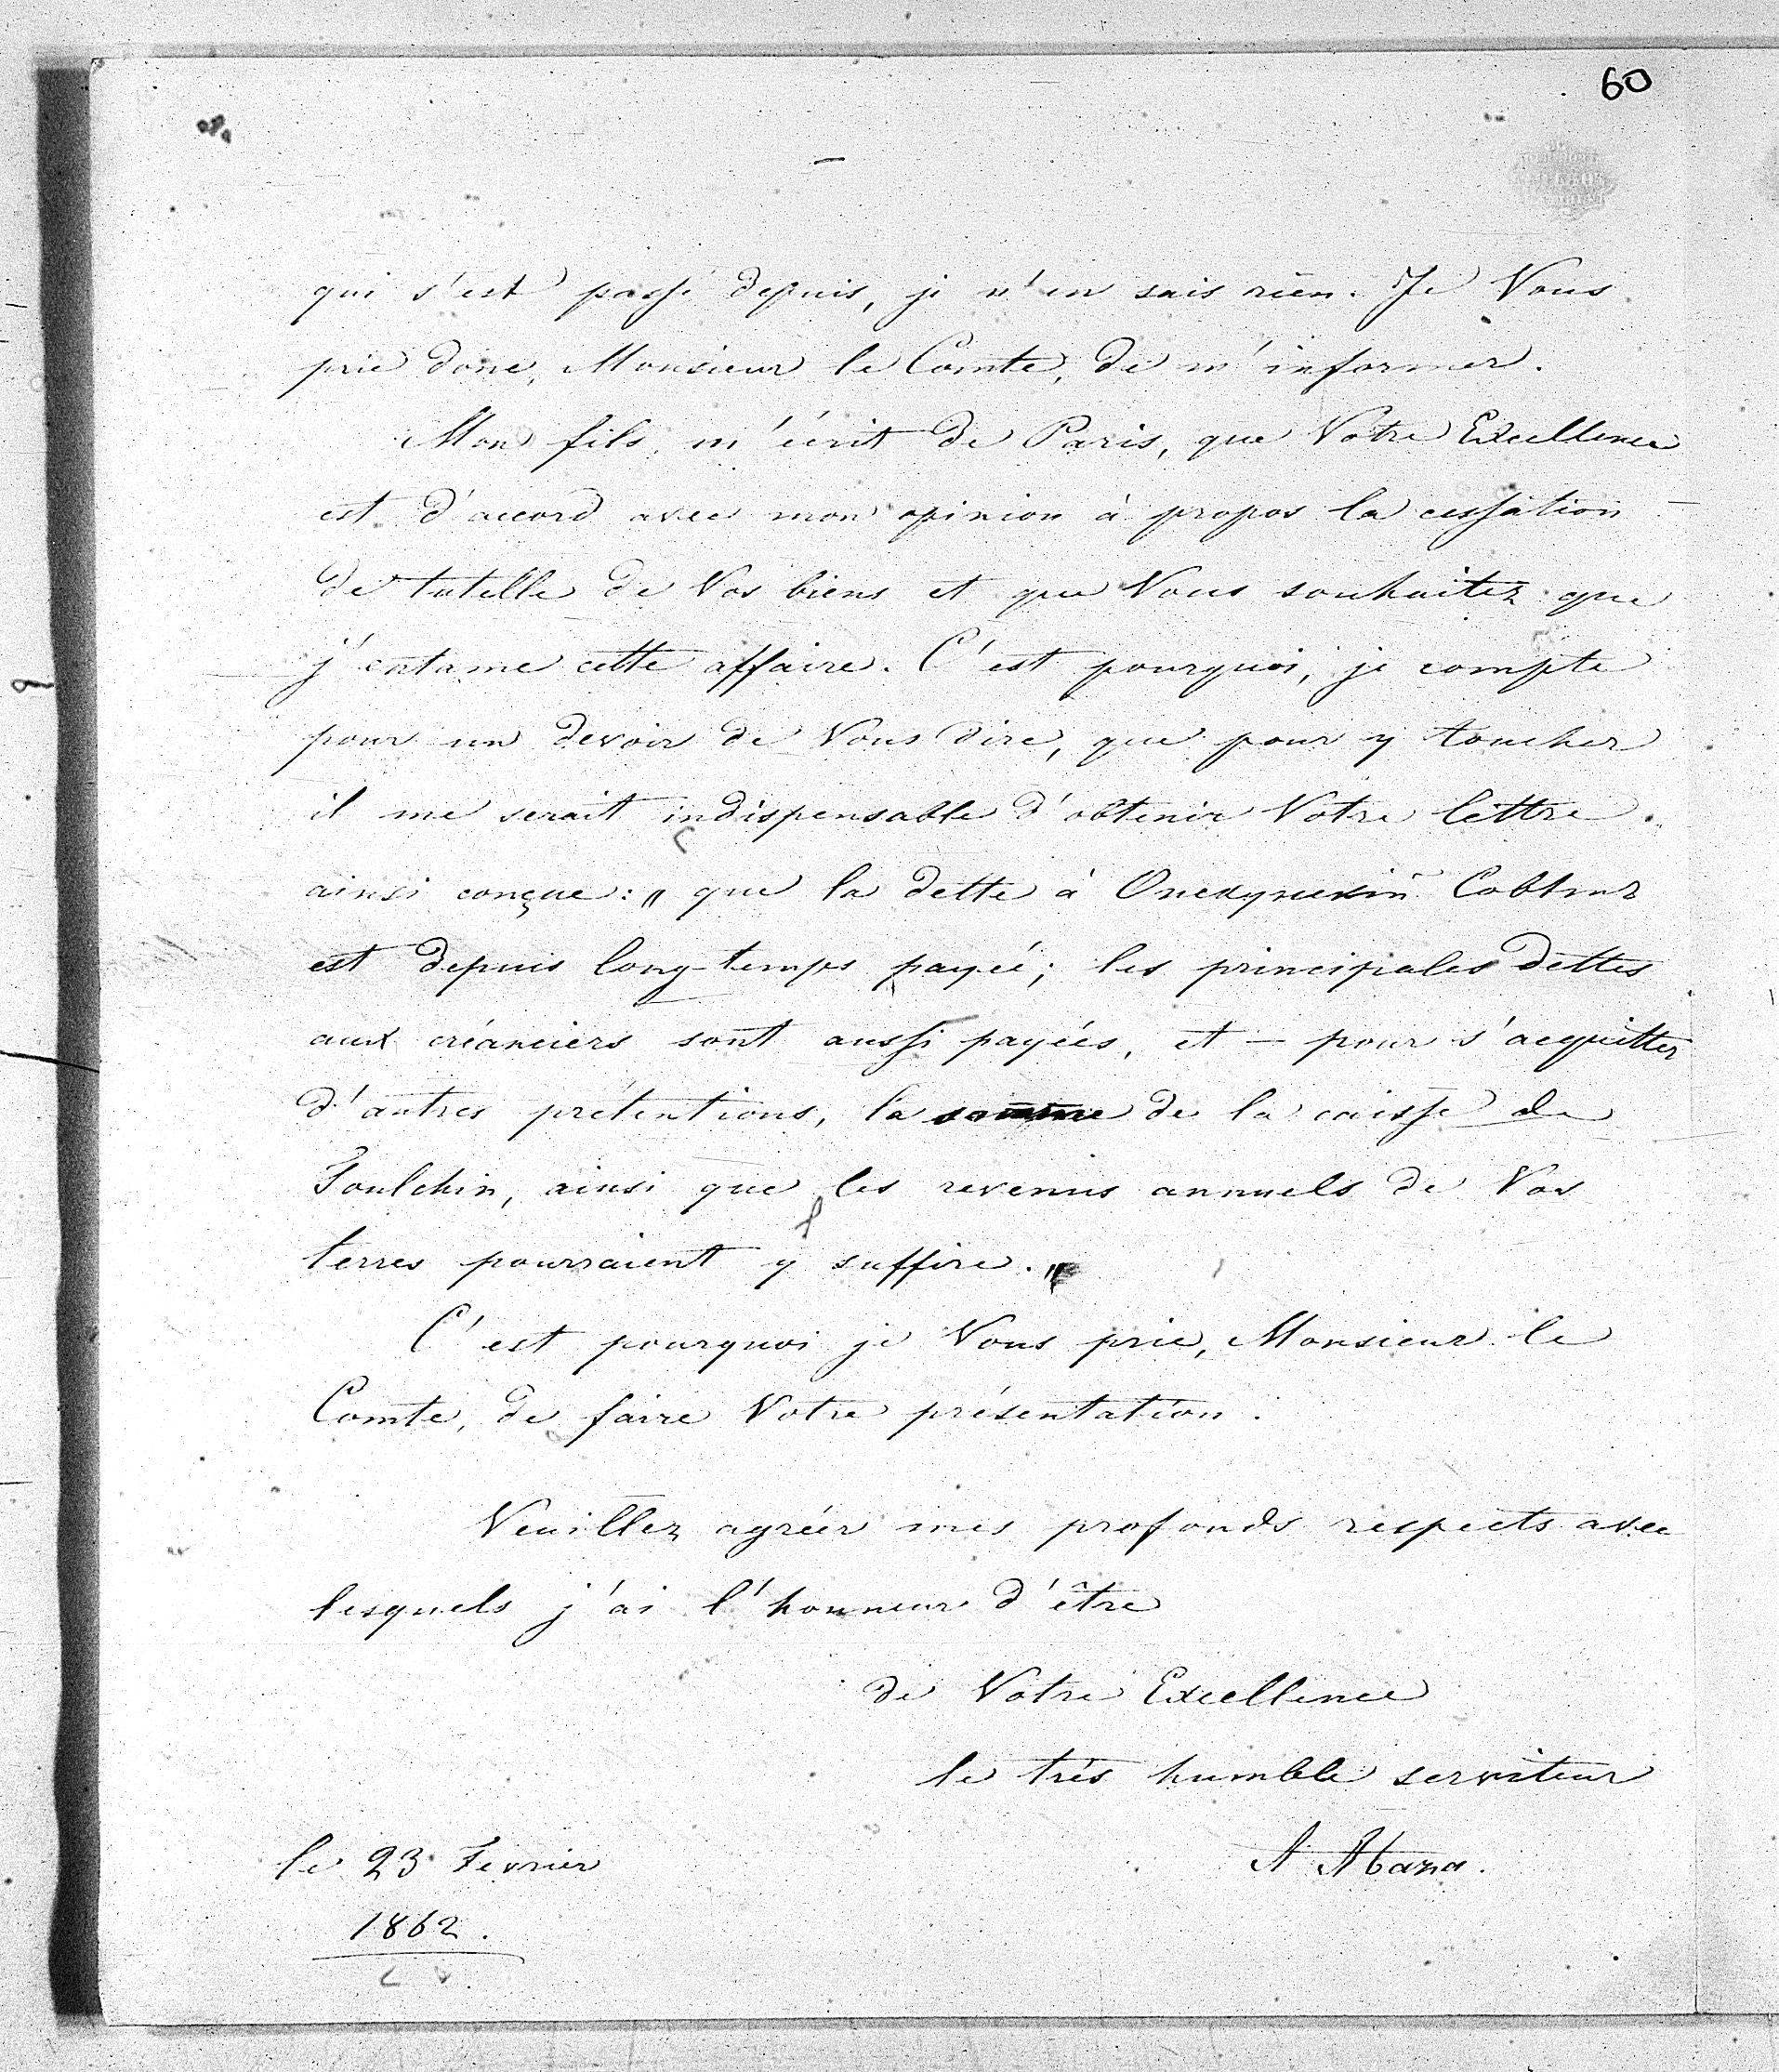 60
qui s'est passé depuis, je n'en sais rien. Je Vous
prie donc, Monsieur le Comte, de m'informer.
Mon fils, m'écrit de Paris, que Votre Excellence
est d'accord avec mon opinion à propos la cessation
de tutelle de Vos biens et que Vous souhaitez que
j'entame cette affaire. C'est pourquoi, je compte
pour un devoir de Vous dire, que pour y toucher
il me serait indispensable d'obtenir Votre lettre
ainsi conçue: „ que la dette à
est depuis long-temps payée; les principales dettes
aux créanciers sont aussi payées, et — pour s'acquitter
d'autres prétentions, la somme de la caisse de
Toulchin, ainsi que les revenus annuels de Vos
terres pourraient y suffire. „
C'est pourquoi je Vous prie, Monsieur le
Comte, de faire Votre présentation.
Veuillez agréer mes profonds respects avec
lesquels j'ai l'honneur d'être
de Votre Excellence
le très humble serviteur
le 23 Fevrier
1862.